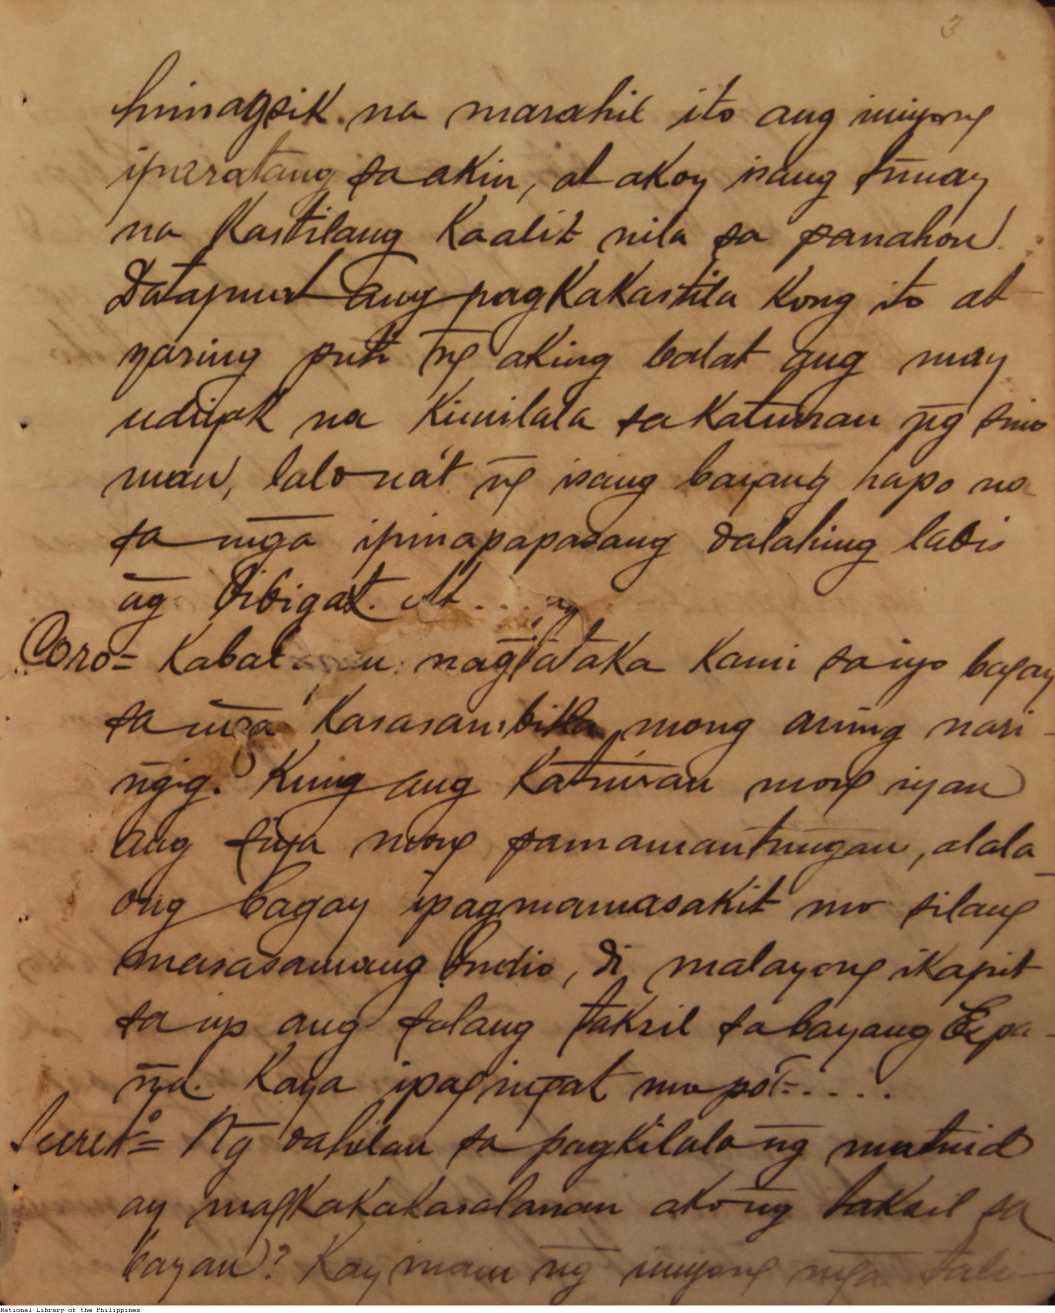 3
himagsik. na marahil ito ang iniyong
iparatang sa akin, at akoy isang tunay
na Kastilang Kaalit nila sa panahon.
Datapuat ang pagkakastila Kong ito at
yaring puti ñg aking balat ang may
udiyok na Kimilala sa Katuiran ñg sino
man, lalo na't ñg isang bayang hapo na
sa mg̃a ipinapapasang dalahing labis
ag bibigat. At....
Coro= nagtataka Kami sa iyo bagay
sa mg̃a mong aming nari-
ñgig. Kung ang Katuiran mong iyan
ang siya mong pamamantungan, alala
ong bagay ipagmamasakit mo silang
masasamang Indio, di malayong ikapit
sa iyo ang salang taksil sa bayang Espa-
ña. Kaya ipag iñgat mo pó=....
Secret°= Ng dahilan sa pagkilala ñg matuid
ay magkakakasalanan ako ñg taksil sa
bayan? Kay inam ñg iniyong mg̃a tali-
National Library of the Philippines